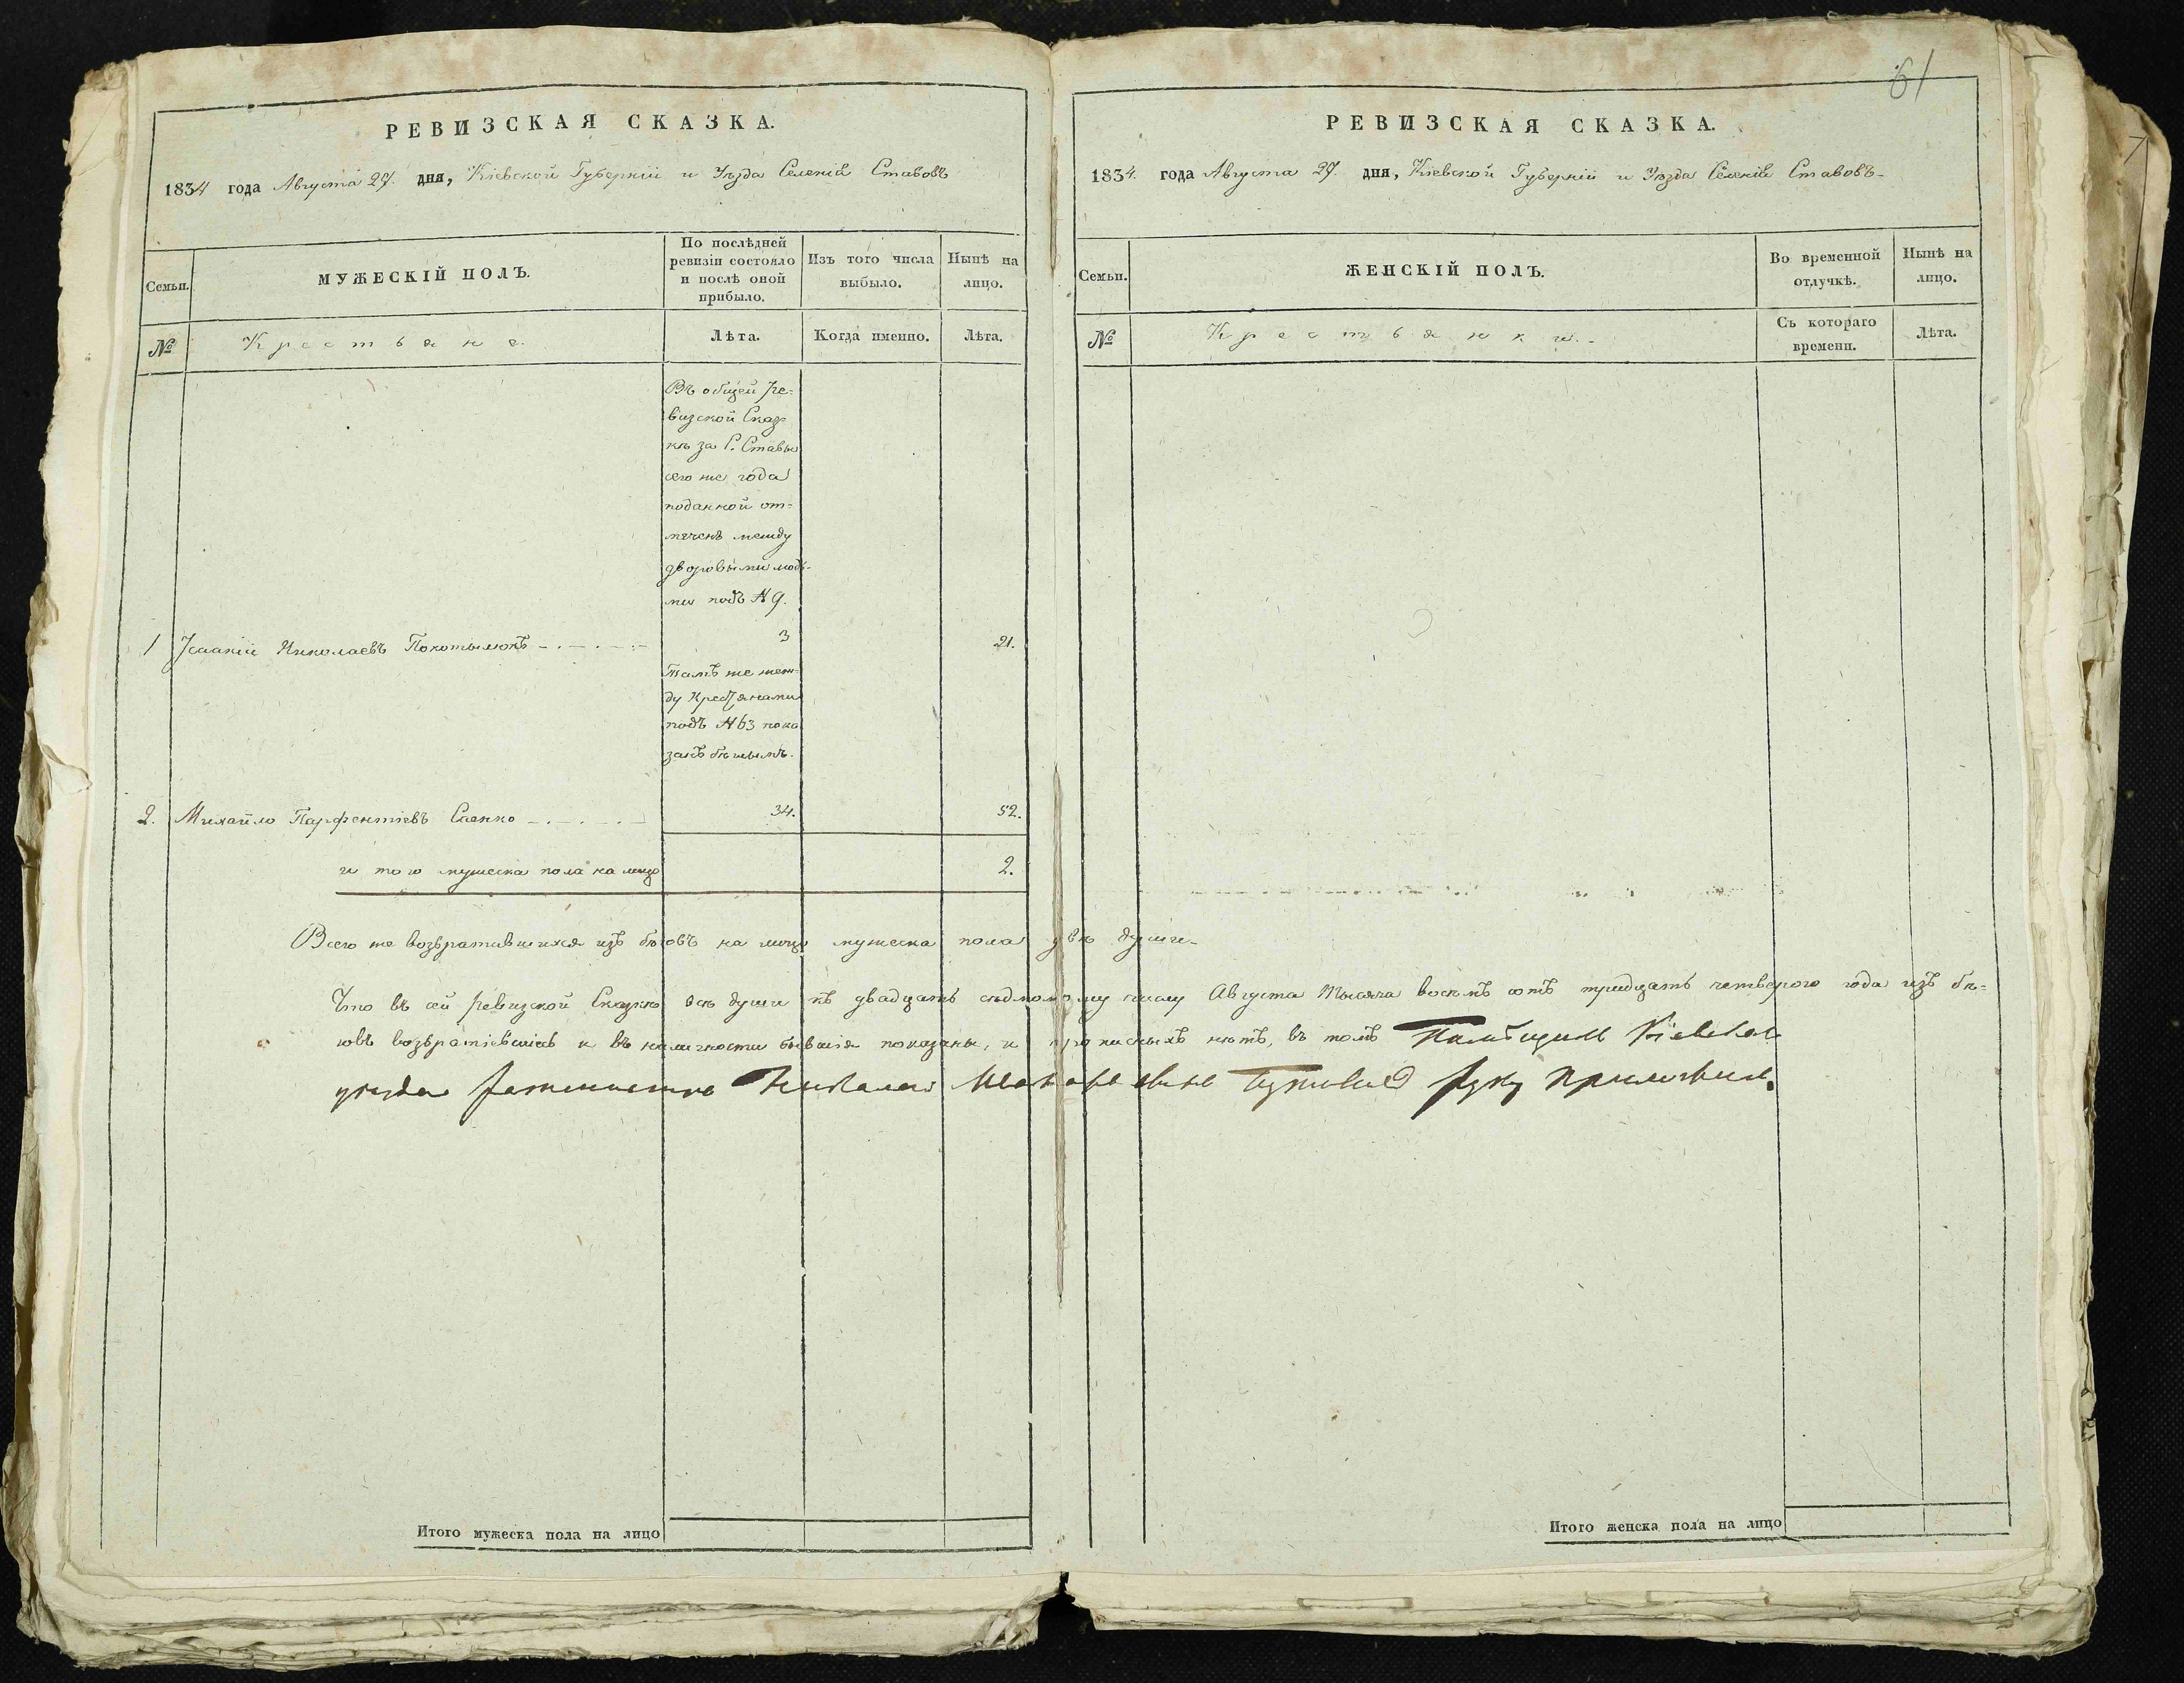 61
РЕВИЗСКАЯ СКАЗКА.
1834 года Августа 27. дня, Кіевской Губерніи и Уѣзда Селенія Ставовъ
Семьи.
МУЖЕСКІЙ ПОЛЪ.
По послѣдней
ревизіи состояло
и послѣ оной
прибыло.
Изъ того числа
выбыло.
Нынѣ на
лицо.
№
Крестьяне.
Лѣта.
Когда именно.
Лѣта.
Въ общей ре-
визской Сказ-
кѣ за С. Ставы
сего же года
поданной от-
мѣченъ между
дворовыми людь-
ми подъ № 9.
1 Исаакій Николаевъ Покотылюкъ 3 21.
Тамъ же меж-
ду Крестьянами
подъ № 63 пока
занъ бѣжымъ.
2. Михайло Парфентіевъ Саенко 34. 52.
и того мужеска пола на лицо 2.
РЕВИЗСКАЯ СКАЗКА.
1834. года Августа 27. дня, Кіевской Губерніи и Уѣзда Селенія Ставовъ
Семьи.
ЖЕНСКІЙ ПОЛЪ.
Во временной
отлучкѣ.
Нынѣ на
лицо.
№
Крестьянки.
Съ котораго
времени.
Лѣта.
Всего же возвратившихся изъ бѣговъ на лицо мужеска пола двѣ души
Что въ сей Ревизской Сказкѣ всѣ души къ двадцать седьмому числу Августа Тысяча восемъ сотъ тридцать четверого года изъ бѣ-
говъ возвратившіесь и въ наличности бывшія показаны, и прописныхъ нѣтъ, въ томъ Помѣщикъ Кіевскаго
уѣзда Николай руку приложилъ.
Итого мужеска пола на лицо
Итого женска пола на лицо